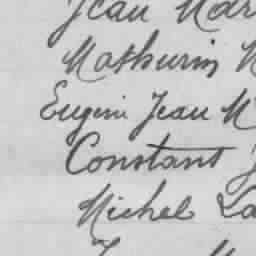 Jean Mar
Mathurin
Eugène Jean M
Constant J
Michel La